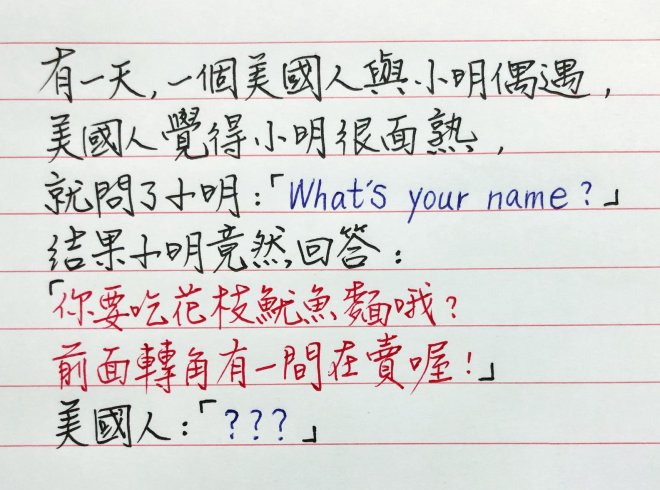 有一天，一個美國人與小明偶遇，
美國人覺得小明很面熟，
就問了小明：「What's your name？」
結果小明竟然回答：
「你要吃花枝魷魚麵哦？
前面轉角有一間在賣喔！」
美國人：「？？？」